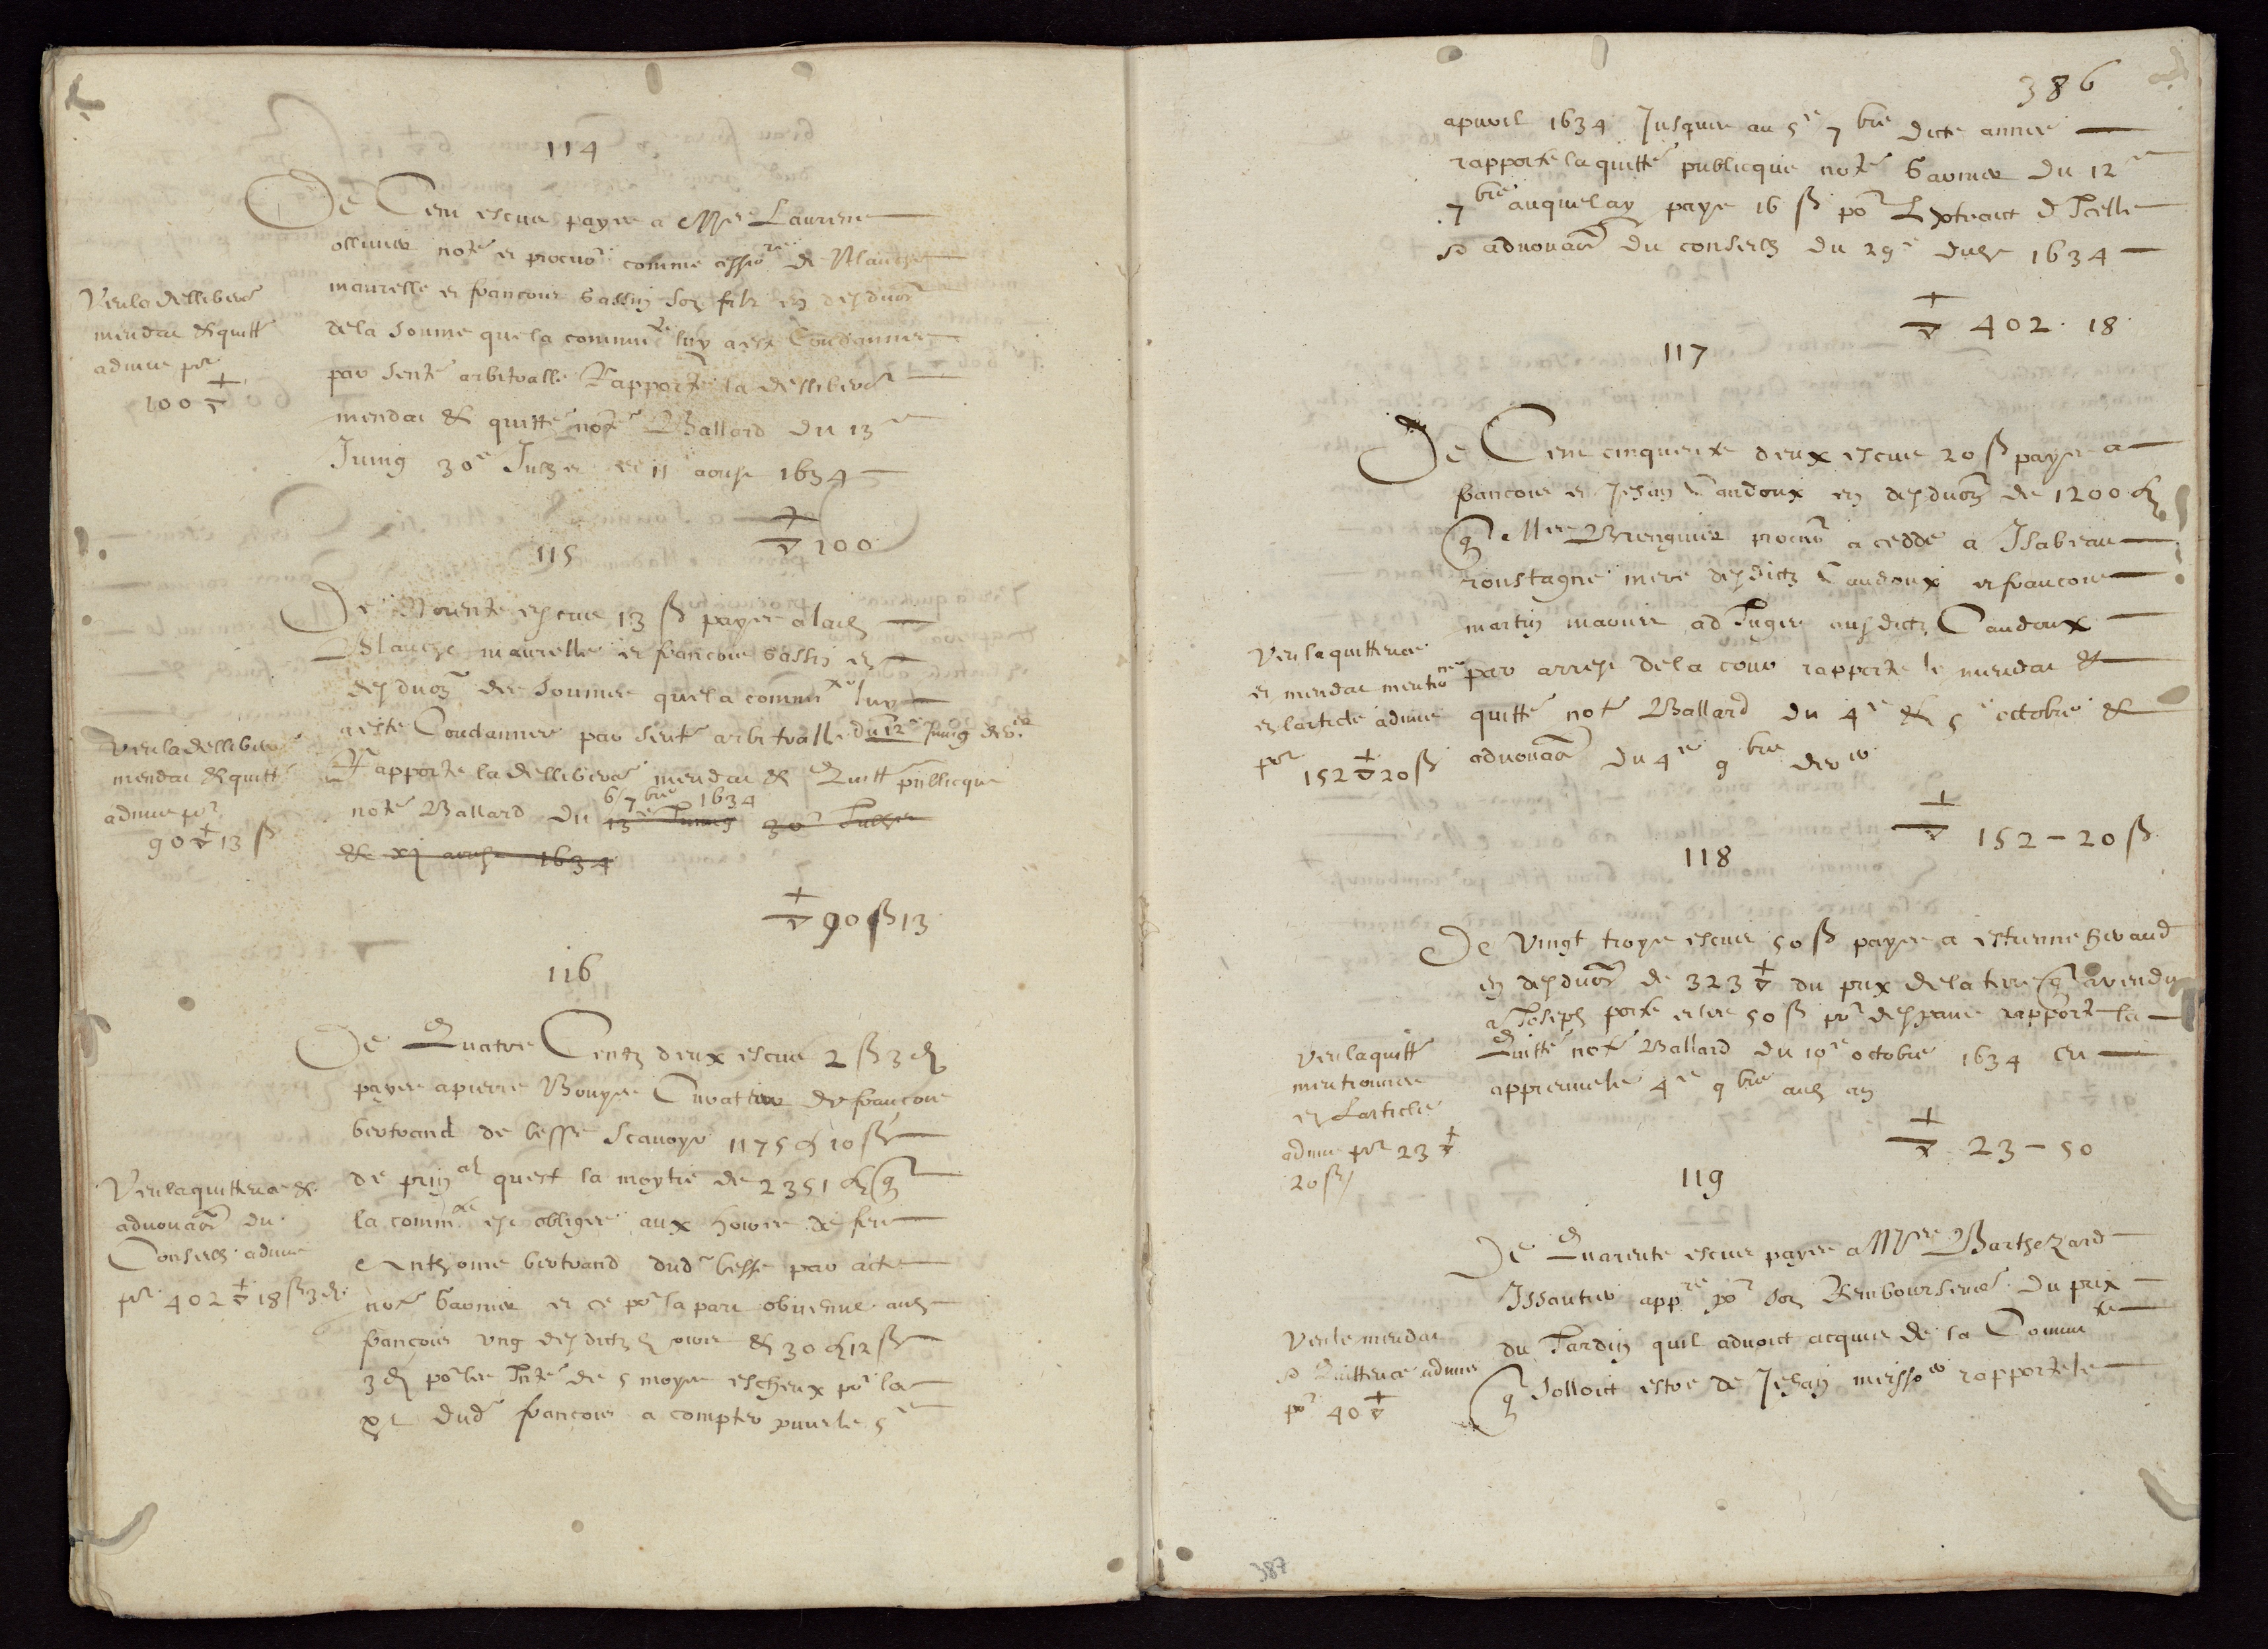 114
De Cent escus payes a Mre Laurens
ollivier notre et procur comme cessre de Blanche
maurelle et francois Gassin son fils en desduon
de la somme que la commte luy a este Condamnee
par sente arbitralle Rapporte la delliberon
mendat & quitte notre Ballard du 13e
Juing 30e Jullet et 11 aoust 1634
Veu la delliberon
mendat & quitt
admis pr
100 ▽
▽ 100
115
De Nonente escus 13 ß payes a lad
Blanche maurelle et francois Gassin en
desduon des sommes que la commte luy
a este Condamnee par sente arbitralle du 12e Juing dern
Rapporte la delliberon mendat & Quitt publicque
6 / 7bre 1634
notre Ballard du 13e Juing 30e Jullet
& xj aoust 1634
Veu la delliberon
mendat & quitt
admis pr
90 ▽ 13 ß
▽ 90 ß 13
116
De Quatre Centz deux escus 2 ß 3 d
payes a pierre Bouyer Curateur de francois
bertrand de besse Scavoyr 1175 10 ß
de prinal quest la moytie de 2351 q
la commte est obligee aux hoirs de feu
Anthoine bertrand dud besse par acte
notre Garnier et ce pr la part obvenue aud
francois ung desdictz hoirs & 30 12 ß
3 d pr les Inte de 5 moys escheux pr la
pt dud francois a compter puis le 5e
Veu la quittence &
advouaon du
Conseilh admis
pr 402 ▽ 18 ß 3 d
386
apvril 1634 Jusques au 5e 7bre dicte annee
rapporte la quitte publicque notre Garnier du 12e
7bre auquel ay paye 16 ß pr Lextraict d Icelle
& advouaon du conseilh du 29e dud 1634
▽ 402 . 18
117
De Cent cinquente deux escus 20 ß payes a
francois et Jehan Caudoux en desduon de 1200
q Mre Brenguier procur a cedde a Isabeau
roustagne mere desdictz Caudoux et francois
martin ad Juges ausdictz Caudoux
par arrest de la cour rapporte le mendat &
quitte notre Ballard du 4e & 5e octobre &
advouaon du 4e 9bre dern
Veu la quittence
et mendat mentionnes
en larticle admis
pr 152 ▽ 20 ß
▽ 152 - 20 ß
118
De Vingt troys escus 50 ß payes a estienne Giraud
en desduon de 323 ▽ du prix de la terre q a vendu
a Joseph porte et les 50 ß pr despans rapporte la
Quitte notre Ballard du 10e octobre 1634 en
appreuve le 4e 9bre aud an
Veu la quitt
mentionnee
en Larticle
admis pr 23 ▽
20 ß
▽ 23 - 50
119
De Quarente escus payes a Mre Barthezard
Issautier appre pr son Rembourseme du prix
du Jardin quil advoict acquis de la Commte
q Solloict estre de Jehan meissonier rapporte le
Veu le mendat
& Quittence admis
pr 40 ▽
387